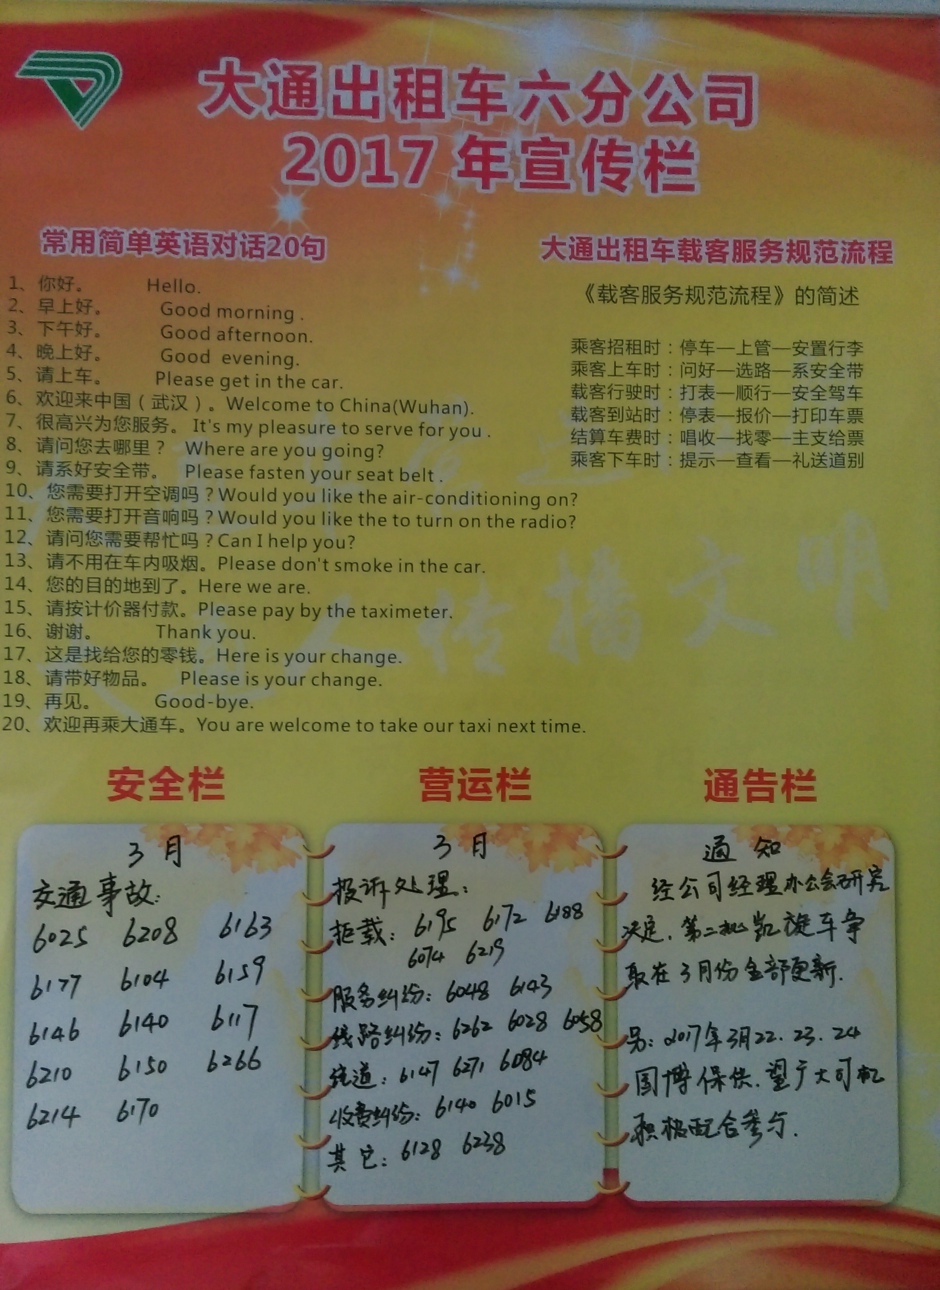 大通出租车六分公司
2017年宣传栏
常用简单英语对话20句
1、你好。 Hello.
2、早上好。 Good morning .
3、下午好。 Good afternoon.
4、晚上好。 Good evening.
5、请上车。 Please get in the car.
6、欢迎来中国（武汉）。Welcome to China(Wuhan).
7、很高兴为您服务。 It's my pleasure to serve for you .
8、请问您去哪里？ Where are you going?
9、请系好安全带。 Please fasten your seat belt .
10、您需要打开空调吗？Would you like the air-conditioning on?
11、您需要打开音响吗？Would you like the to turn on the radio?
12、请问您需要帮忙吗？Can I help you?
13、请不用在车内吸烟。Please don't smoke in the car.
14、您的目的地到了。Here we are.
15、请按计价器付款。Please pay by the taximeter.
16、谢谢。 Thank you.
17、这是找给您的零钱。Here is your change.
18、请带好物品。 Please is your change.
19、再见。 Good-bye.
20、欢迎再乘大通车。You are welcome to take our taxi next time.
大通出租车载客服务规范流程
《载客服务规范流程》的简述
乘客招租时：停车—上管—安置行李
乘客上车时：问好—选路—系安全带
载客行驶时：打表—顺行—安全驾车
载客到站时：停表—报价—打印车票
结算车费时：唱收—找零—主支给票
乘客下车时：提示—查看—礼送道别
人传播文明
安全栏
3月
交通事故:
6025 6208 6163
6177 6104 6159
6146 6140 6117
6210 6150 6266
6214 6170
营运栏
3月
投诉处理:
拒载: 6195 6172 6188
6074 6219
服务纠纷: 6048 6143
线路纠纷: 6262 6028 6058
绕道: 6147 6271 6084
收费纠纷: 6140 6015
其它: 6128 6238
通告栏
通知
经公司经理办公会研究
决定,第二批凯旋车争
取在3月份全部更新.
另: 2017年3月22.23.24
国博保供.望广大司机
积极配合参与.